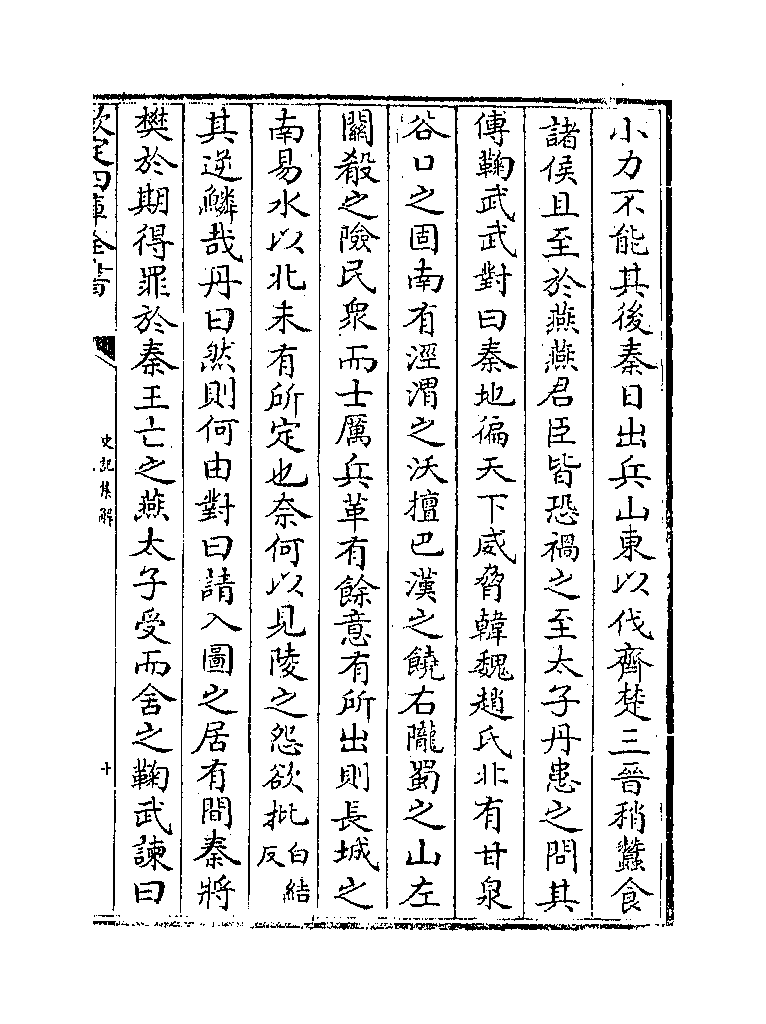 小力不能其後秦日出兵山東以伐齊楚三晉稍蠶食
諸侯且至於燕燕君臣皆恐禍之至太子丹患之問其
傅鞠武武對曰秦地徧天下威脅韓魏趙氏北有甘泉
谷口之固南有涇渭之沃擅巴漢之饒右隴蜀之山左
關殽之險民衆而士厲兵革有餘意有所出則長城之
南易水以北未有所定也奈何以見陵之怨欲批白結反
其逆鱗哉丹曰然則何由對曰請入圖之居有間秦將
樊於期得罪於秦王亡之燕太子受而舍之鞠武諫曰
欽定四庫全書
史記集解
十